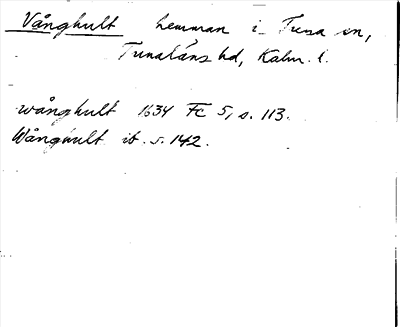 Vånghult hemman i Tuna sn,
Tunaläns hd, Kalm. l.
wånghult 1634 FC 5, s. 113.
Wånghult ib. s. 142.